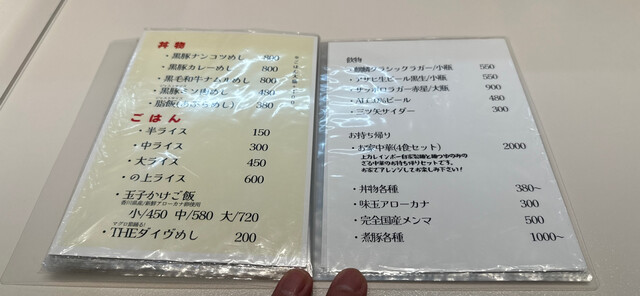 丼物
・黒豚ナンコツめし 800
・黒豚カレーめし 800
・黒毛和牛ナムルめし 800
・黒豚 肉めし 480
・脂飯 めし) 380
ごはん
・半ライス 150
・中ライス 300
・大ライス 450
・の上ライス 600
・玉子かけご飯
小/450 中/580 大/720
・THEダイヴめし 200
飲物
・麒麟クラシックラガー/小瓶 550
・アサヒ生ビール黒生/小瓶 550
・サッポロラガー赤星/大瓶 900
・ALC0.0%ビール 480
・三ツ矢サイダー 300
お持ち帰り
・お家中華(4食セット) 2000
ざる中華のお持ち帰りセットです。
お家でアレンジしてお楽しみ下さい!
・丼物各種 380~
・味玉アローカナ 300
・完全国産メンマ 500
・煮豚各種 1000~